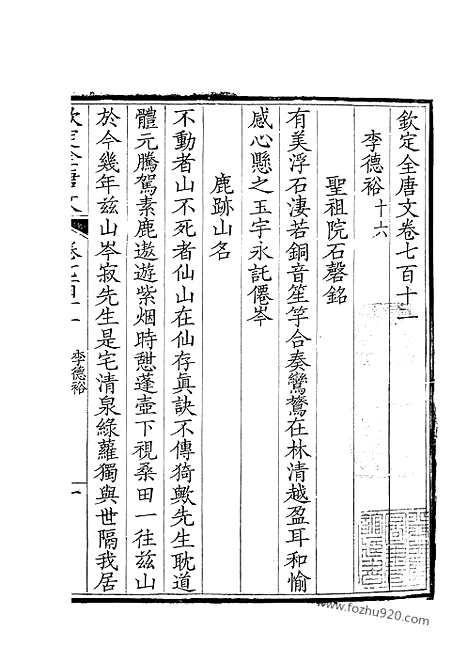 欽定全唐文卷七百十一
李德裕十六
聖祖院石磬銘
有美浮石淒若銅音笙竽合奏鸞鷔在林清越盈耳和愉
感心懸之玉宇永託僊岑
鹿跡山名
不動者山不死者仙山在仙存眞訣不傳猗歟先生耽道
體元騰駕素鹿遨遊紫烟時憇蓬壺下視桑田一往茲山
於今幾年茲山岑寂先生是宅清泉綠蘿獨與世隔我居
欽定全唐文
李德裕
一
www.fozhu920.com